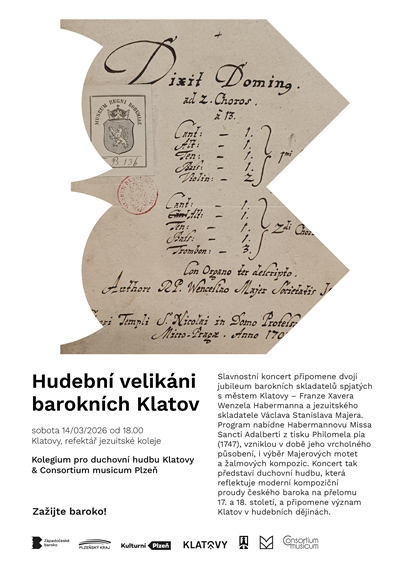 Dixit Doming.
ad 2. Choros.
à 13.
MUSEUM REGNI BOHEMIAE
Cant: – 1.
Alt: – 1.
Ten: – 1.
Bass: – 1.
Violin: – 2.
1mi
Cant: – 1.
Alt: – 1.
Ten: – 1.
Bass: – 1.
Trombon: – 3.
2di Chor
Con Organo ter descripto.
Authore R.P. Wenceslao Majer Societatis
Templi S. Nicolai in Domo Profess
Micro-Pragae. Anno 170
Hudební velikáni
barokních Klatov
sobota 14/03/2026 od 18.00
Klatovy, refektář jezuitské koleje
Kolegium pro duchovní hudbu Klatovy
& Consortium musicum Plzeň
Zažijte baroko!
Slavnostní koncert připomene dvojí
jubileum barokních skladatelů spjatých
s městem Klatovy – Franze Xavera
Wenzela Habermanna a jezuitského
skladatele Václava Stanislava Majera.
Program nabídne Habermannovu Missa
Sancti Adalberti z tisku Philomela pia
(1747), vzniklou v době jeho vrcholného
působení, i výběr Majerových motet
a žalmových kompozic. Koncert tak
představí duchovní hudbu, která
reflektuje moderní kompoziční
proudy českého baroka na přelomu
17. a 18. století, a připomene význam
Klatov v hudebních dějinách.
Západočeské
baroko
PLZEŇSKÝ KRAJ
Kulturní Plzeň
KLATOVY
Consortium
musicum